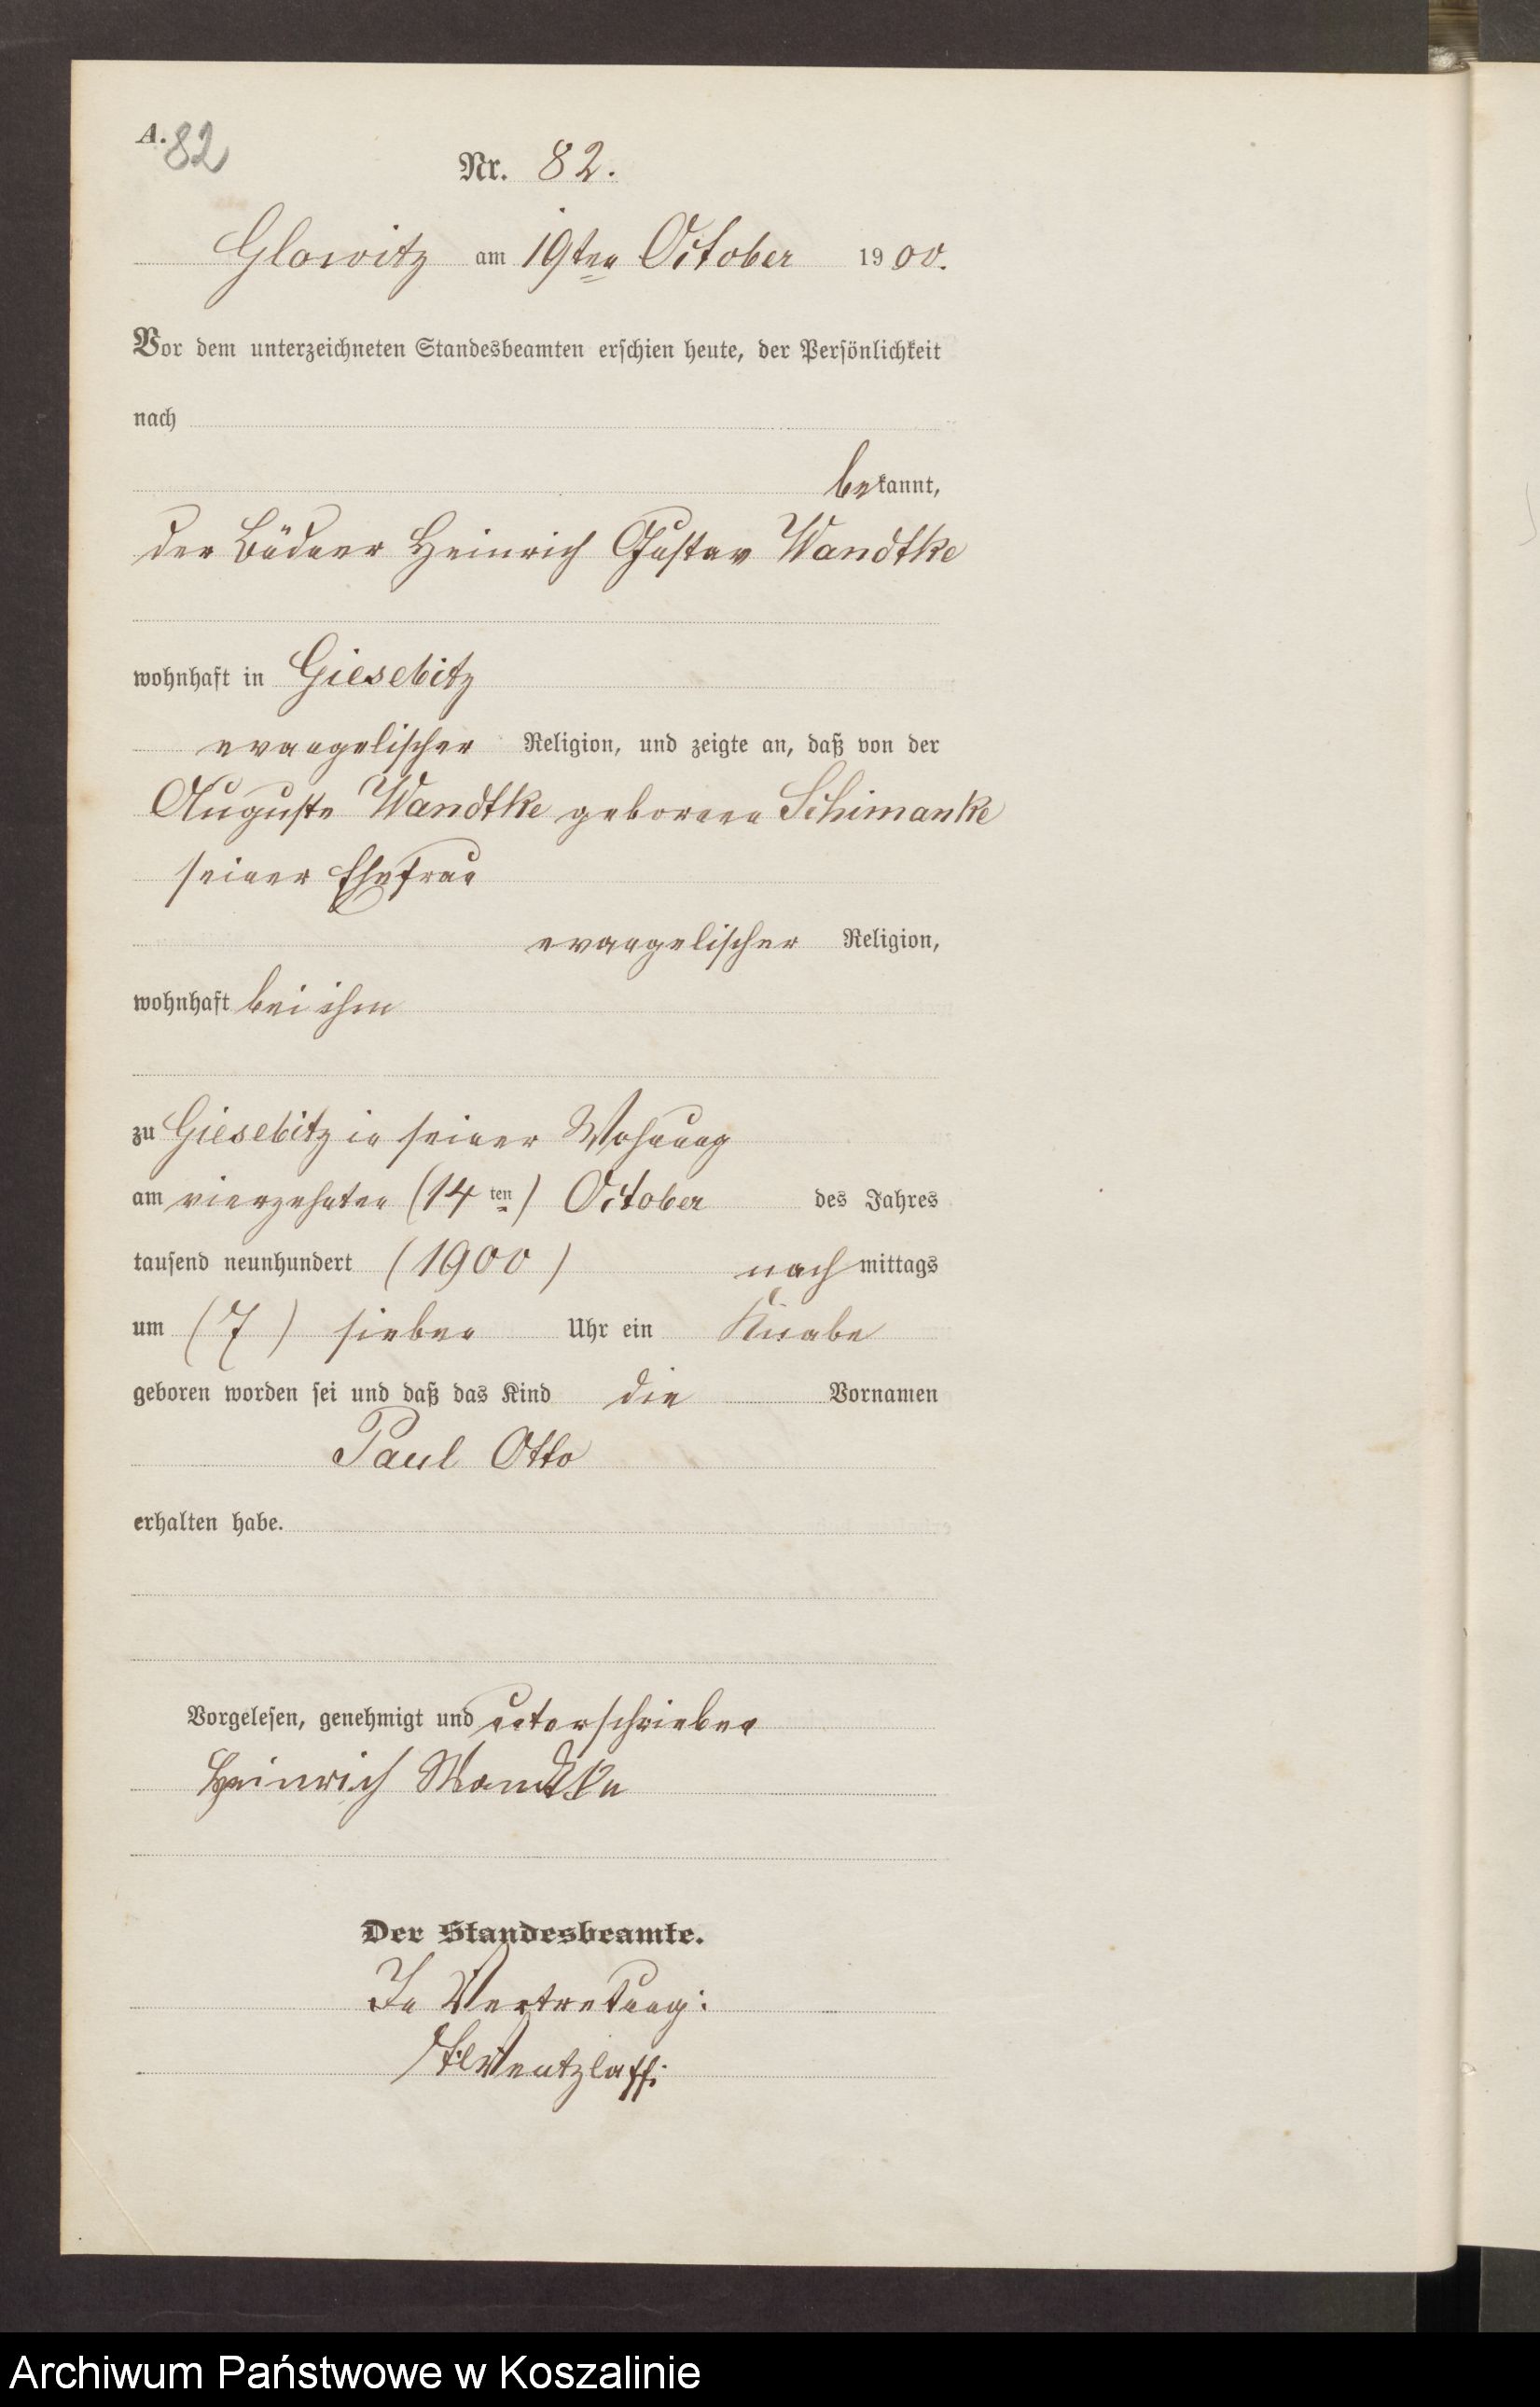 A. 82
Nr. 82.
Glowitz am 19ten October 1900.
Vor dem unterzeichneten Standesbeamten erschien heute, der Persönlichkeit
nach
bekannt,
der Büdner Heinrich Gustav Wandtke
wohnhaft in Giesebitz
evangelischer Religion, und zeigte an, daß von der
Auguste Wandtke geborenen Schimanke
seiner Ehefrau
evangelischer Religion,
wohnhaft bei ihm
zu Giesebitz in seiner Wohnung
am vierzehnten (14ten) October des Jahres
tausend neunhundert (1900) nachmittags
um (7) sieben Uhr ein Knabe
geboren worden sei und daß das Kind die Vornamen
Paul Otto
erhalten habe.
Vorgelesen, genehmigt und unterschrieben
Heinrich Wandtke
Der Standesbeamte.
In Vertretung:
Wentzlaff.
Archiwum Państwowe w Koszalinie